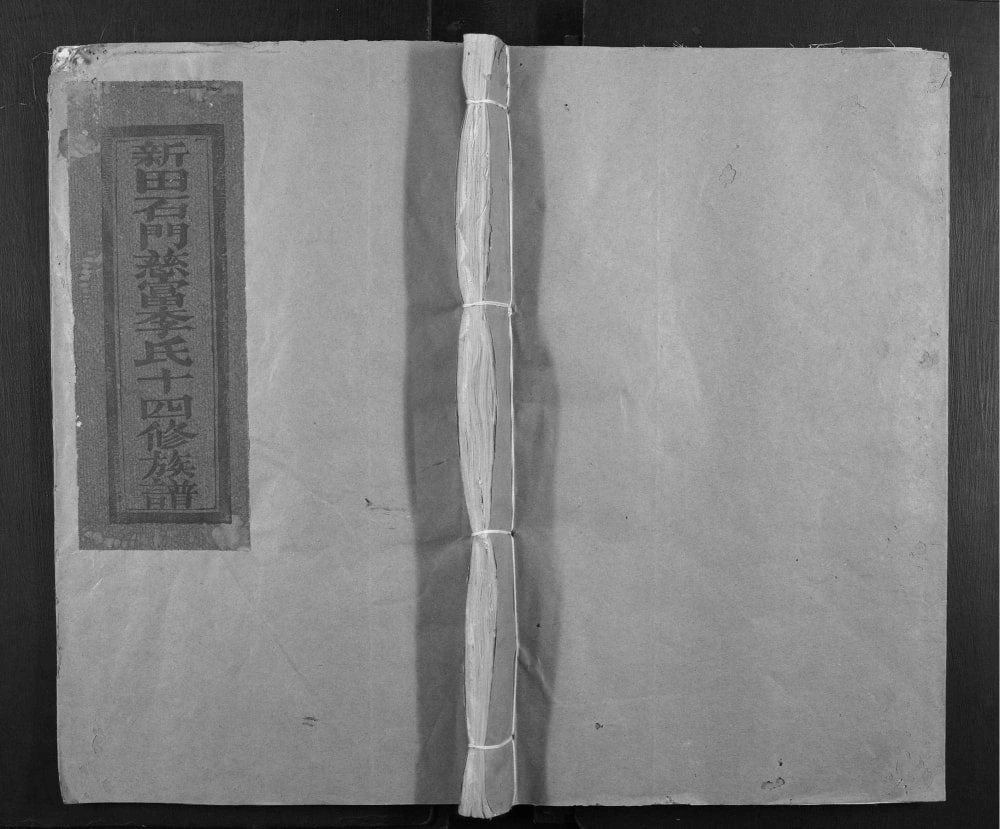 新田石門慈富李氏十四修族譜